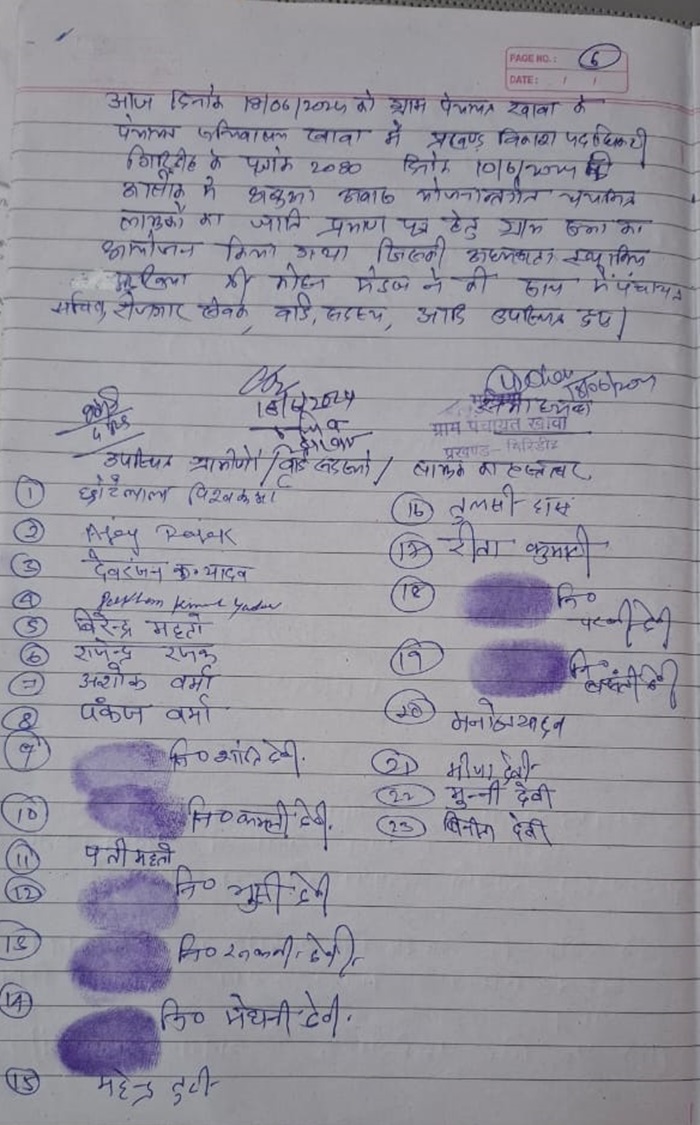 PAGE NO.: 6
DATE: / /
आज दिनांक 18/06/2024 को ग्राम पंचायत खावा के
पंचायत सचिवालय खावा में प्रखण्ड विकास पदाधिकारी
गिरिडीह के पत्रांक 2080 दिनांक 10/6/2024 के
आलोक में अबुआ आवास योजनान्तर्गत चयनित
लाभुकों का जाति प्रमाण पत्र हेतु ग्राम सभा का
आयोजन किया गया जिसकी अध्यक्षता स्थानिय
मुखिया श्री मंडल ने की साथ में पंचायत
सचिव, रोजगार सेवक, वार्ड सदस्य, आदि उपस्थित हुए।
18/6/2024
18/06/2024
मुखिया
ग्राम पंचायत खावा
प्रखण्ड- गिरिडीह
उपस्थित ग्रामीणों / वार्ड सदस्यो / लाभुक का हस्ताक्षर
1 छोटेलाल विश्वकर्मा
2 Ajay Rajak
3 देवरंजन कु॰ यादव
4 Kumar Yadav
5 बिरेन्द्र महतो
6 राजेन्द्र रजक
7 अशोक वर्मा
8 पंकज वर्मा
9 नि० शांति देवी.
10 नि० कमली देवी.
11 महतो
12 नि० देवी
13 नि० देवी.
14 नि० मेथनी देवी.
15 महेन्द्र
16 तुलसी दास
17 रीता कुमारी
18 नि०
देवी
19 नि०
देवी
20 मनोज यादव
21 मीना देवी
22 मुन्नी देवी
23 बिनीता देवी